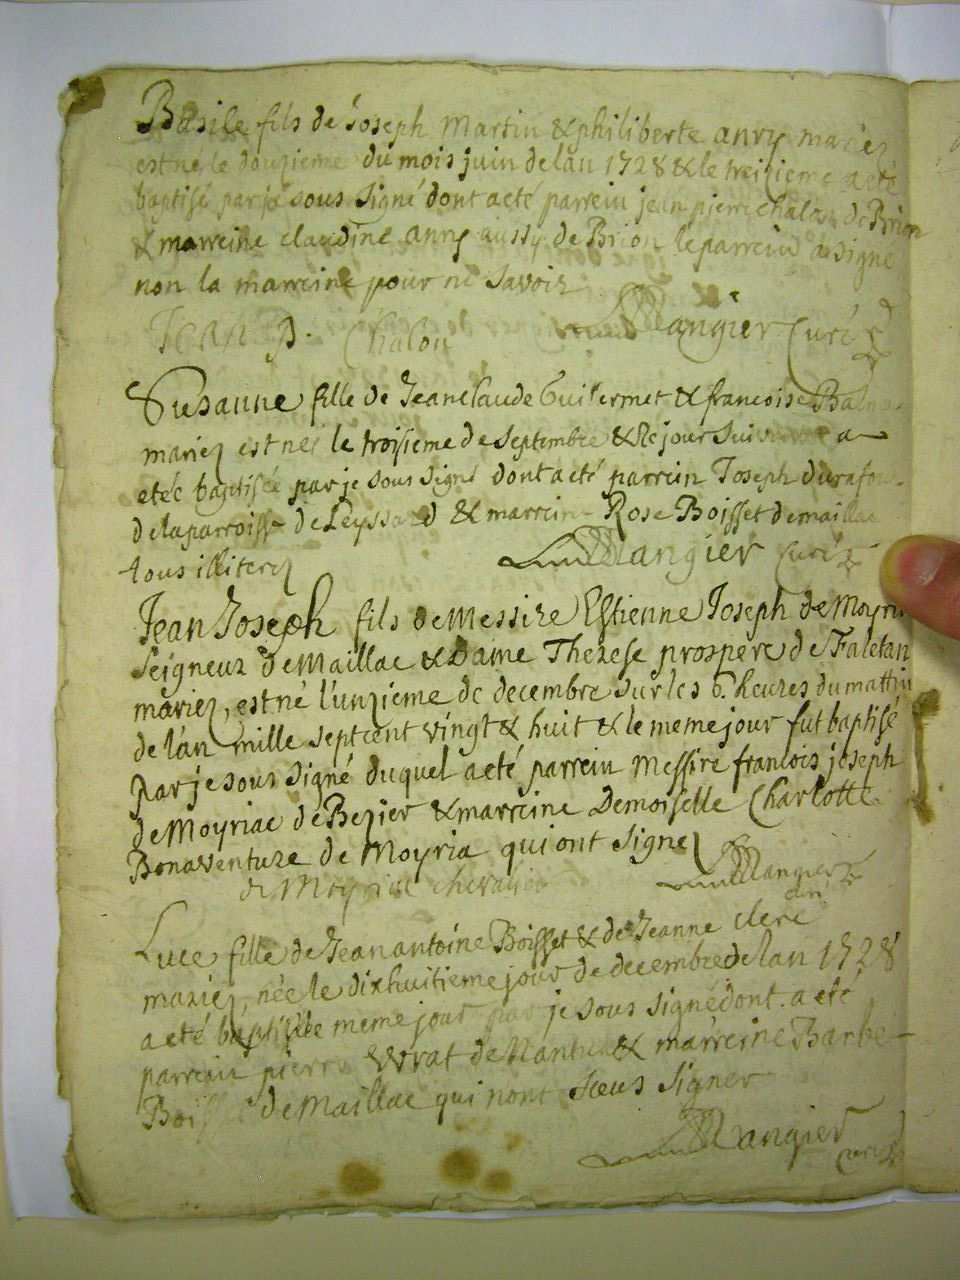 Basile fils de Joseph Martin & philiberte anry mariez
est né le douzieme du mois juin de lan 1728 & le treizieme a eté
baptisé par je sous signé dont a eté parrein jean pierre chalon de Brion
& marreine claudine anry aussy de Brion le parrein a signé
non la marreine pour ne savoir
Jean P. Chalon Mangier Curé
Susanne fille de Jean claude Guillermet & francoise
mariez est neé le troisieme de septembre & le jour suivant a
eteé baptisée par je sous signé dont a eté parrein Joseph
de la parroisse de Leyssard & marreine Rose Boisset de maillac
tous illiterez Mangier Curé
Jean Joseph fils de Messire Estienne Joseph de Moyria
Seigneur de Maillac & Dame Therese prospere de Faletan
mariez, est né l'unzieme de decembre sur les 6. heures du mattin
de l'an mille septcent vingt & huit & le meme jour fut baptisé
par je sous signé duquel a eté parrein Messire francois joseph
de Moyriac de Bezier & marreine Demoiselle Charlotte
Bonaventure de Moyria qui ont signez
de Moyria chevalier Mangier
curé
Luce fille de Jean antoine Boisset & de Jeanne clerc
mariez, née le dixhuitieme jour de decembre de lan 1728
a eté baptisée le meme jour par je sous signé dont a eté
parrein pierre de Nantua & marreine Barbe
Boisset de Maillac qui nont sceus signer
Mangier
curé